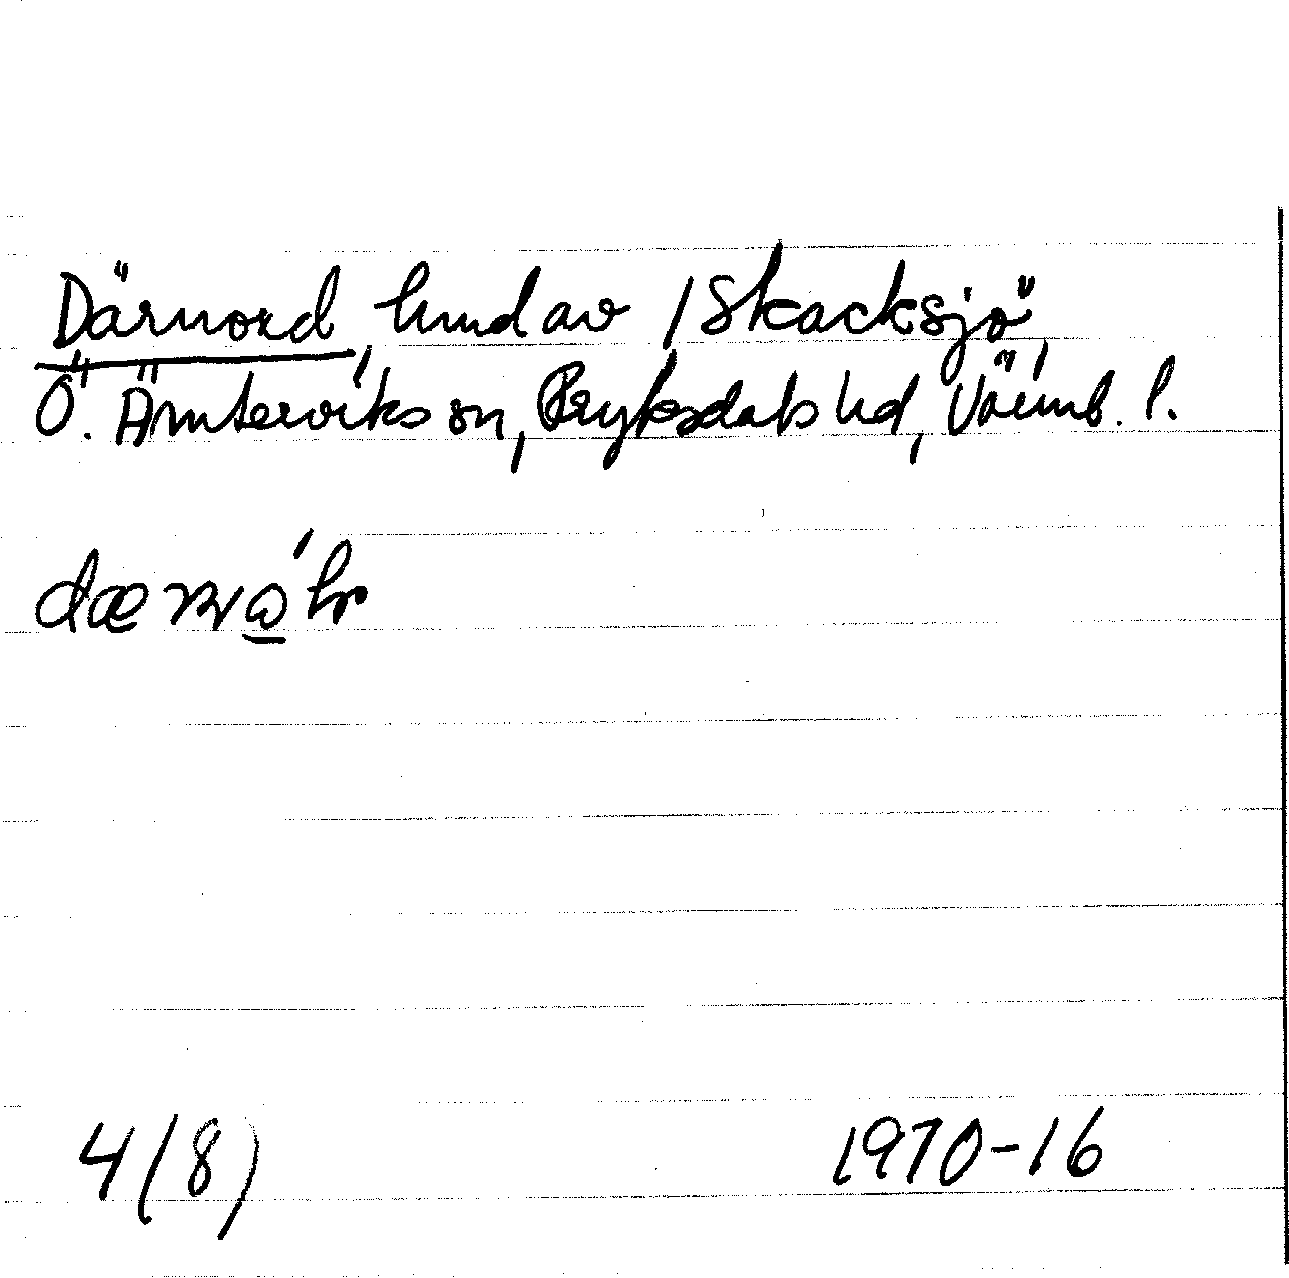 Därnord, hmd av /Skacksjö,
Ö. Ämterviks sn, Fryksdals hd, Värml. l.
4(8) 1970-16